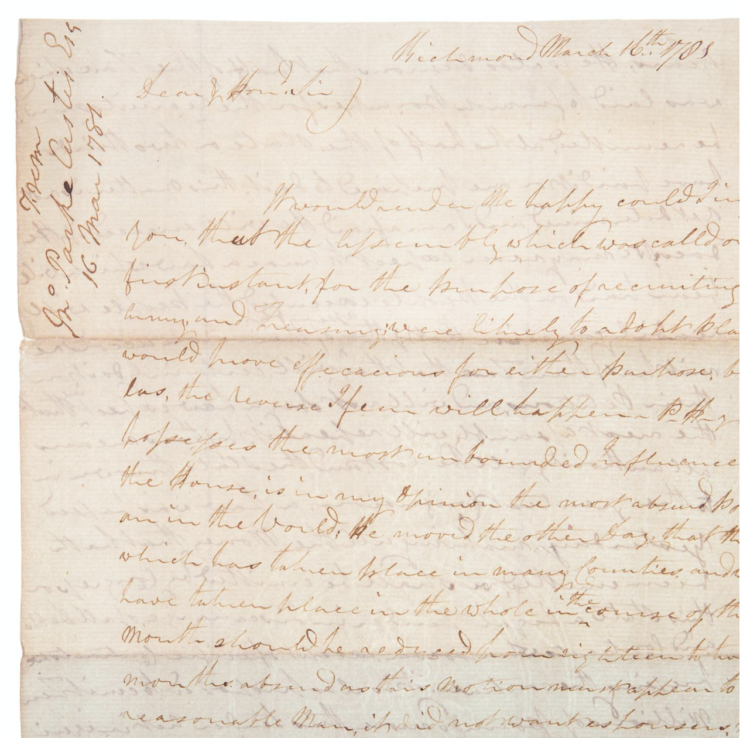 From
Jno Parke Custis Esq
16. Mar 1781.
Richmond March 16th 1781
Dear & Hond Sir
It would render Me happy could I in
you, that the Assembly which was called on
first instant, for the purpose of recruiting
army, and Treasury, were likely to adopt pla
would prove effecacious for either purpose, b
las, the reverse I fear will happen. P. H—y
possesses the most unbounded Influence
the House, is in my Opinion the most absurd Po
an in the World, He moved the other Day, that th
which has taken place in many Counties, and
have taken place in the whole in the course of th
Month should be reduced from eighteen to
months absurd as this Motion must appear to
reasonable Man, it did not want espousers,